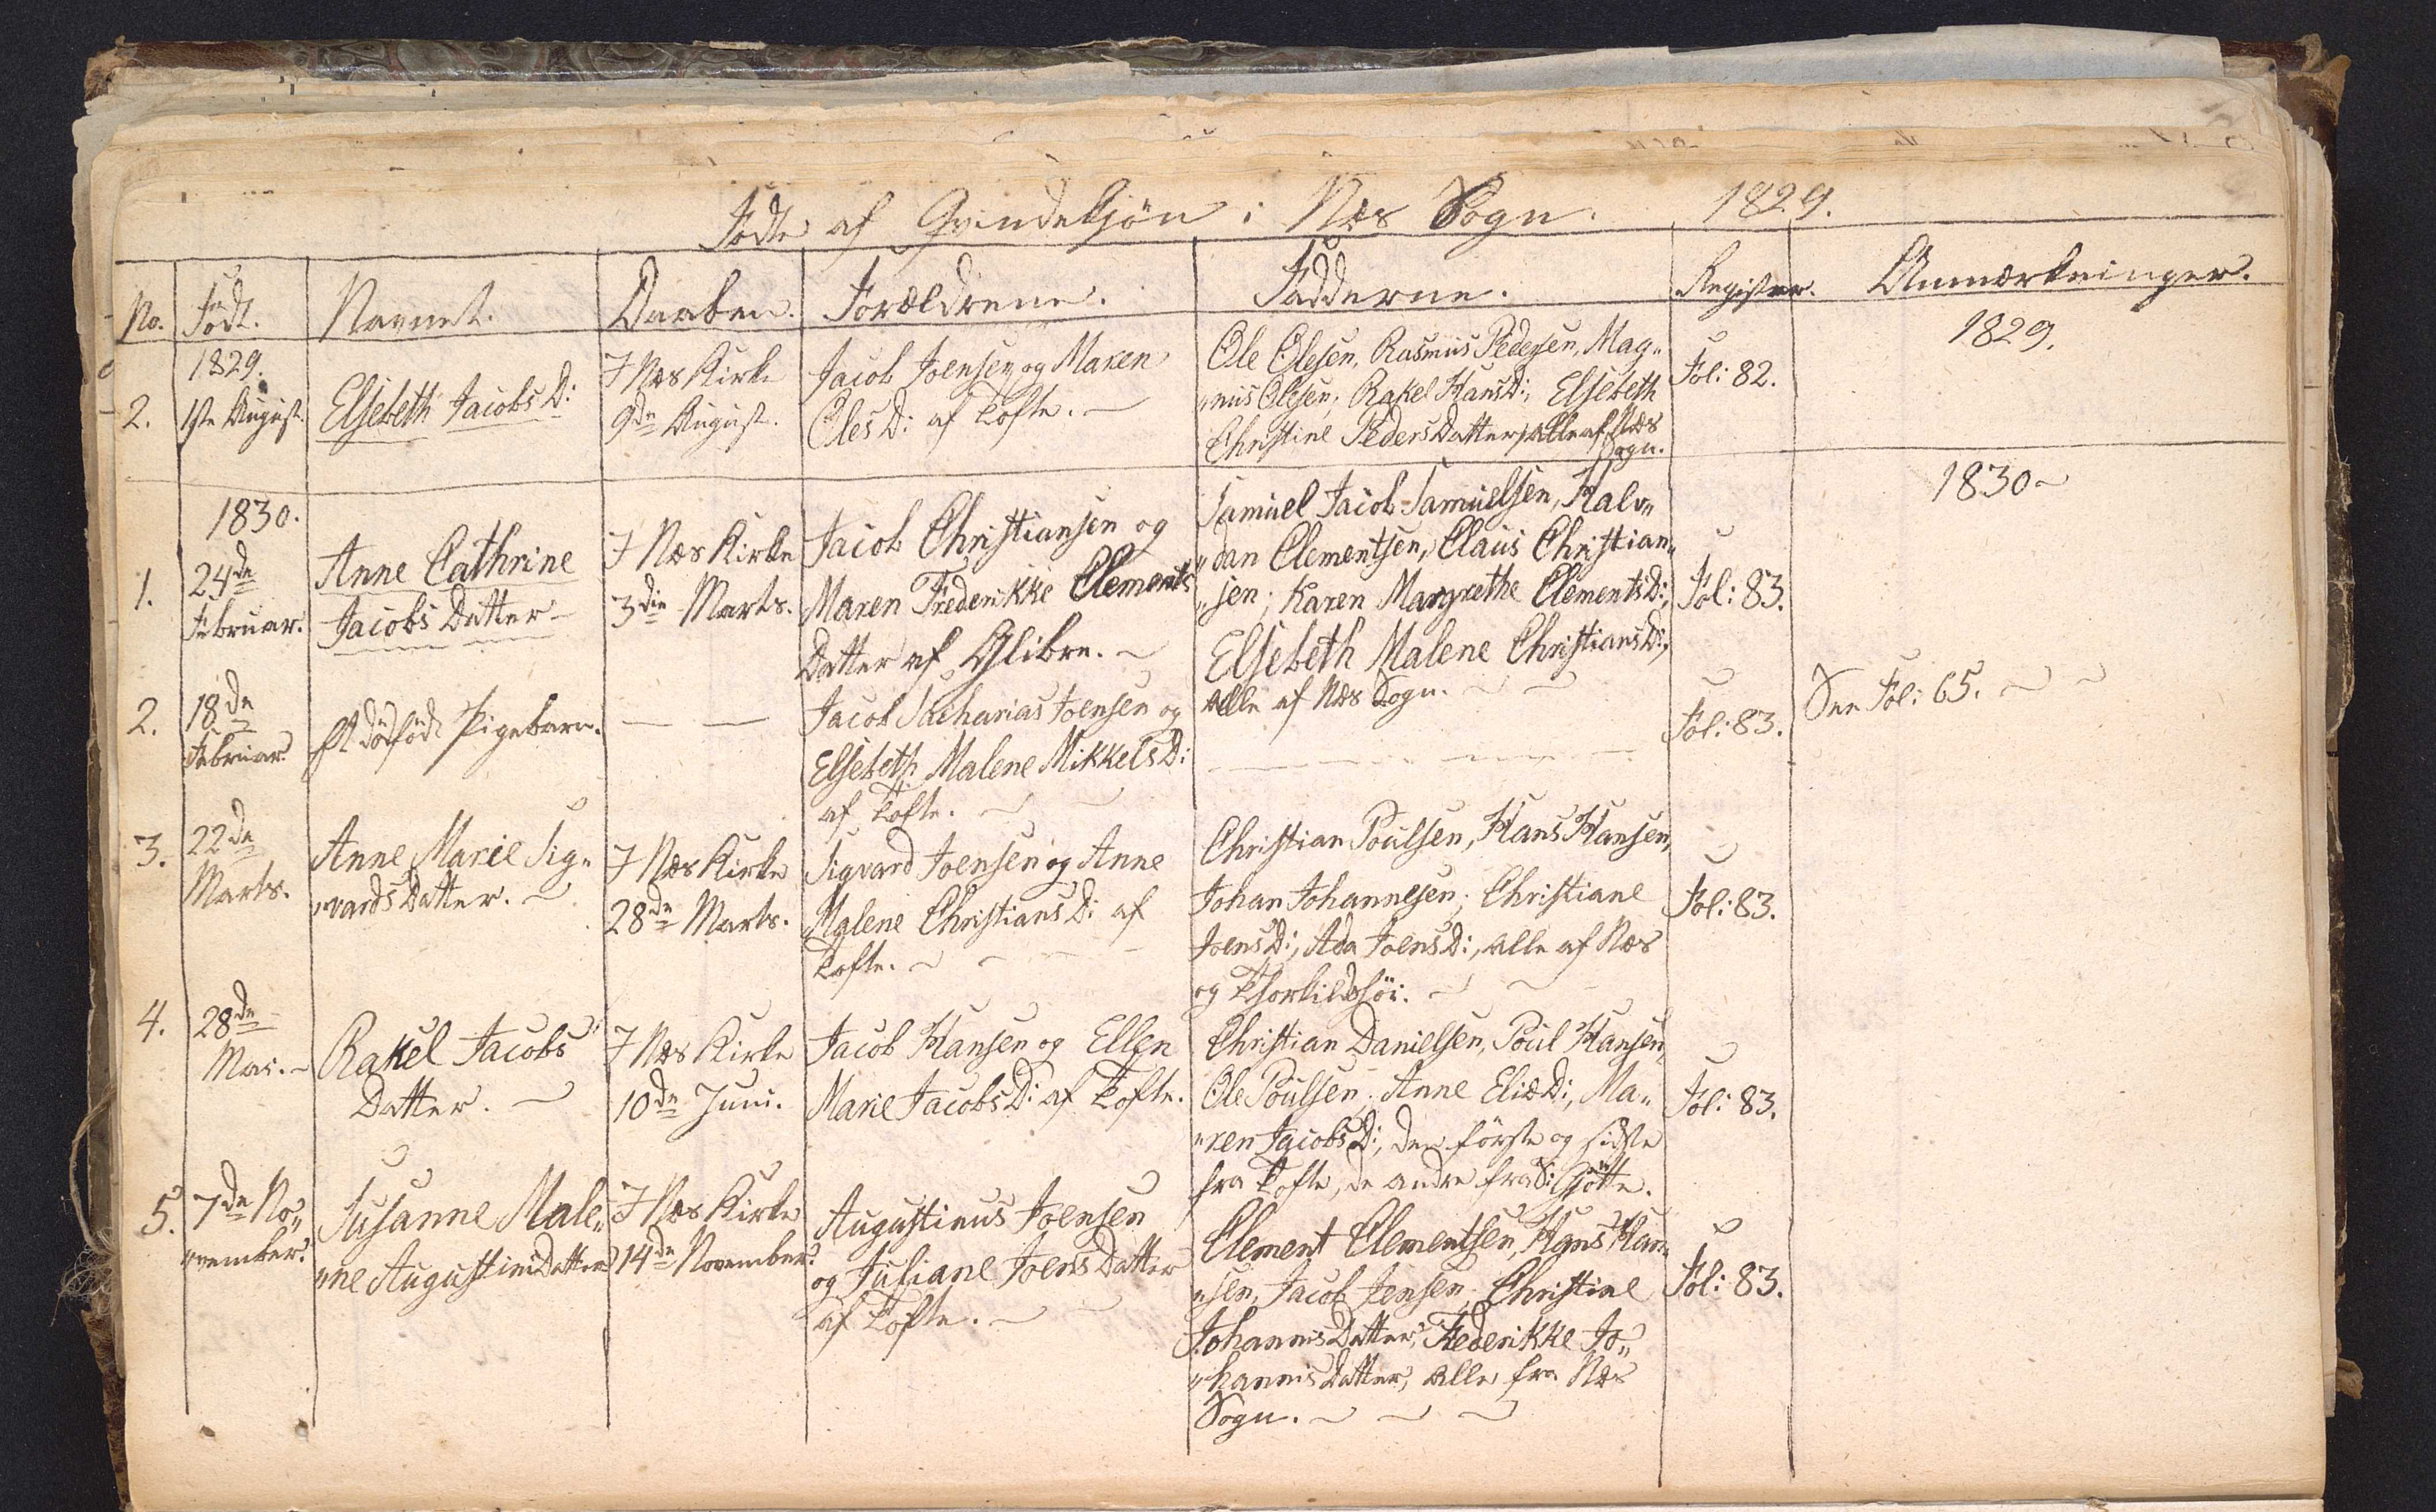 Födte af Qvindekjön i Næs Sogn. 1829.
No. Födt. Navnet. Daaben. Forældrene. Fadderne. Register. Anmærkninger.
1829.
2. 1ste August. Elsebeth Jacobs D:
I Næs Kirke
9de August.
Jacob Joensen og Maren
Oles D: af Tofte. —
Ole Olesen, Rasmus Pedersen, Mag„
„nus Olesen; Rakel Hans D:, Elsebeth
Christine Peders Datter, alle af Næs
Sogn.
Fol: 82.
1829.
1830.
1. 24de
Februar.
Anne Cathrine
Jacobs Datter —
I Næs Kirke
3die Marts.
Jacob Christiansen og
Maren Frederikke Clements
Datter af Glibre. ~
Samuel Jacob Samuelsen, Halv„
„dan Clementsen, Claus Christian„
„sen; Karen Margrethe Clements D:,
Elsebeth Malene Christians D:,
alle af Næs Sogn. ~ ~
Fol: 83.
1830 ~
2. 18de
Februar
Et dödfödt Pigebarn.
— —
Jacob Sacharias Joensen og
Elsebeth Malene Mikkels D:
af Tofte. ~ ~
Fol: 83.
See Fol: 65. ~ ~
3. 22de
Marts.
Anne Marie Sig„
„vards Datter. ~
I Næs Kirke
28de Marts.
Sigvard Joensen og Anne
Malene Christians D: af
Tofte. ~ ~ ~
Christian Poulsen, Hans Hansen,
Johan Johannesen; Christiane
Joens D:, Ada Joens D:, alle af Næs
og Thorkildshöi. ~ ~
Fol: 83.
4. 28de
Mai. ~
Rakel Jacobs
Datter. ~
I Næs Kirke
10de Juni.
Jacob Hansen og Ellen
Marie Jacobs D: af Tofte.
Christian Danielsen, Poul Hansen,
Ole Poulsen; Anne Eliæ D:, Ma„
„ren Jacobs D:, den förste og sidste
fra Tofte, de andre fra S: Gjötte.
Fol: 83.
5. 7de No„
„vember.
Susanne Male„
„ne Augustini Datter
I Næs Kirke
14de November.
Augustinus Joensen
og Juliane Joens Datter
af Tofte. ~ ~
Clement Clementsen, Hans Han„
„sen, Jacob Jensen; Christine
Johannis Datter, Frederikke Jo„
„hannis Datter, alle fra Næs
Sogn. ~ ~ ~
Fol: 83.